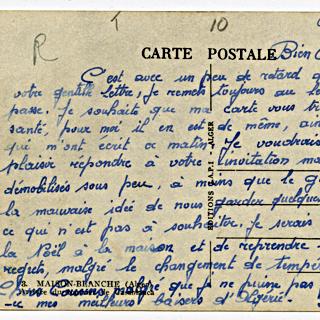 R T 10
CARTE POSTALE
Bien
C'est avec un peu de retard q
votre gentille lettre, je remets toujours au le
passe. Je souhaite que ma carte vous tr
santé, pour moi il en est de même, ain
qui m'ont écrit ce matin. Je voudrais
plaisir répondre à votre l'invitation ma
démobilisés sous peu, à moins que le g
la mauvaise idée de nous garder quelques
ce qui n'est pas à souhaiter. Je serais
la Noël à la maison et de reprendre
reçus, malgré le changement de tempér
8. MAISON-BLANCHE (Alger)
que je ne puisse pas
-ie mes meilleurs baisers d'Algérie.
EDITIONS C.A.P. - ALGER